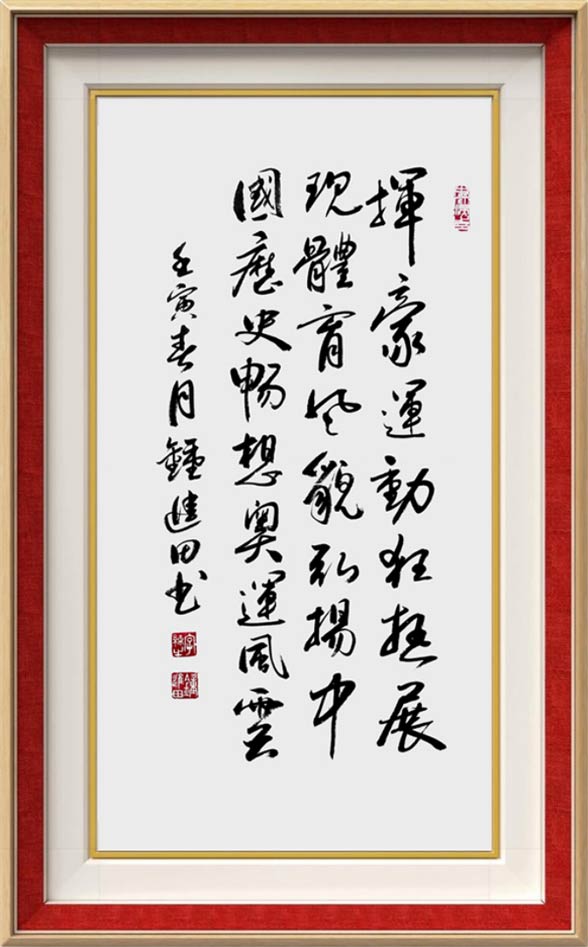 揮豪運動狂热展
現體育风貌弘揚中
國歷史暢想奧運風雲
壬寅春月鍾進田书